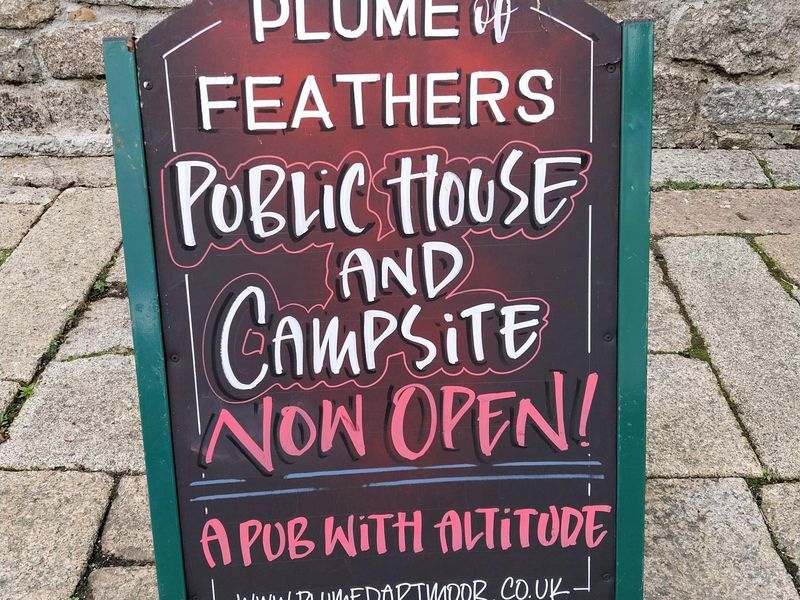 PLUME of
FEATHERS
PUBLIC HOUSE
AND
CAMPSITE
NOW OPEN!
A PUB WITH ALTITUDE
WWW.PLUMEDARTMOOR.CO.UK